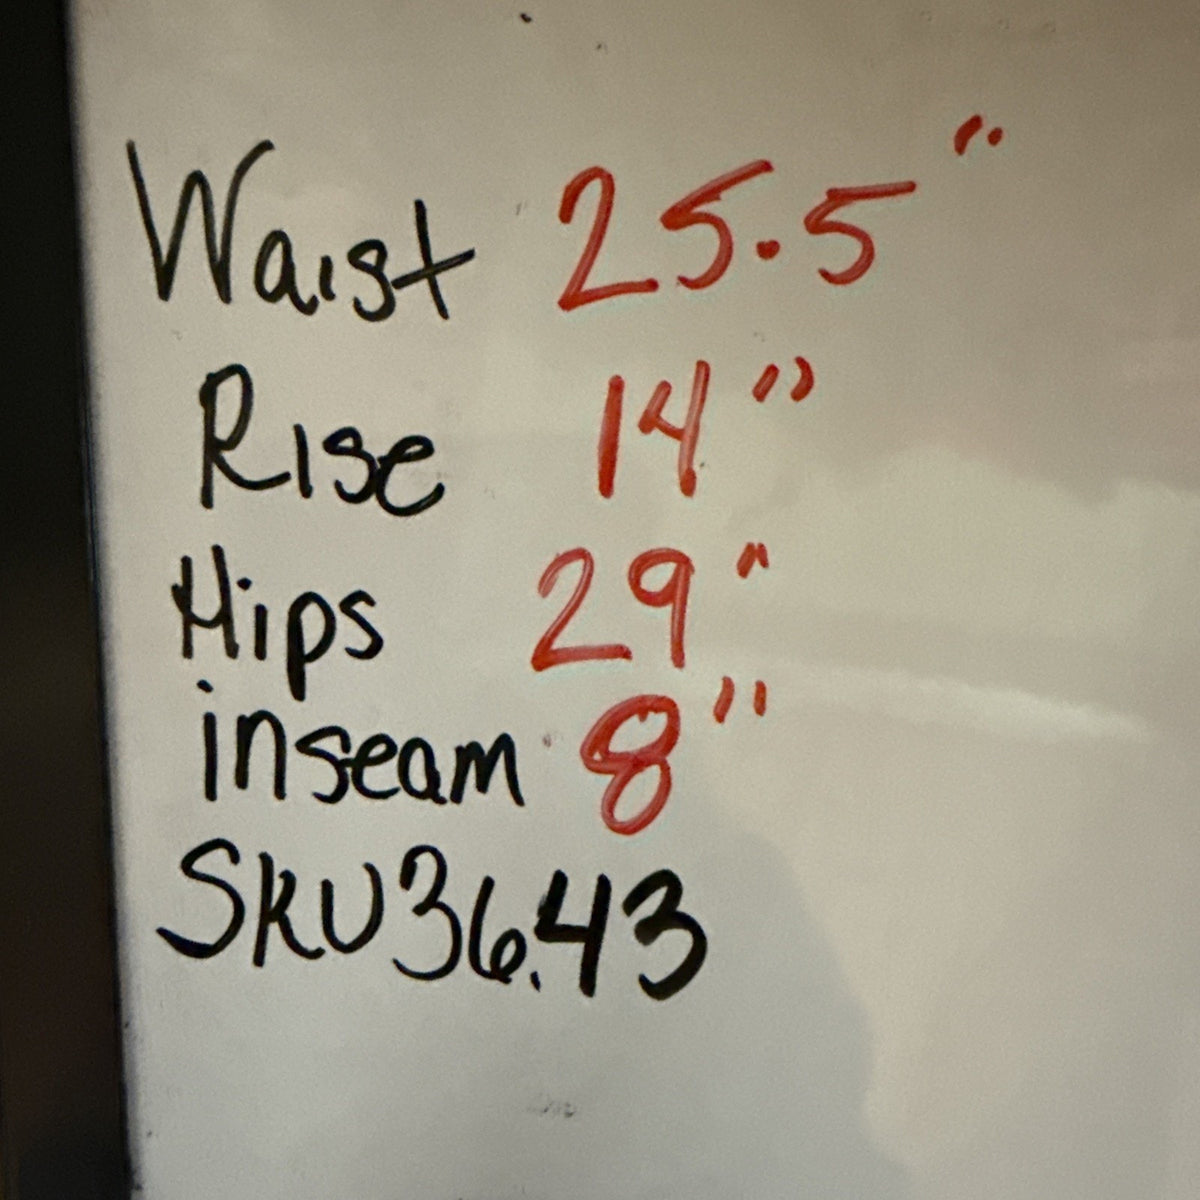 Waist 25.5"
Rise 14"
Hips 29"
inseam 8"
SKU36.43